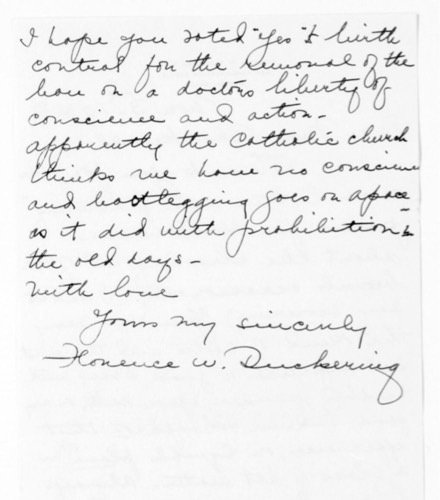 I hope you voted "Yes" to birth
control for the removal of the
ban on a doctors liberty of
conscience and action -
apparently the Catholic church
thinks we have no conscience
and bootlegging goes on apace
as it did with prohibition in
the old days -
With love
Yours very sincerely
Florence W. Duckering